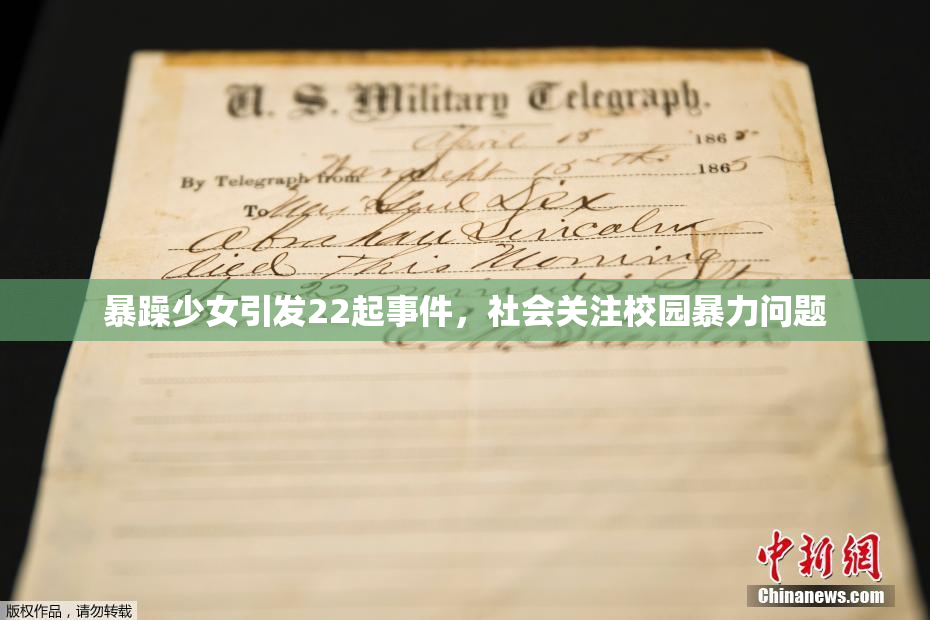 U. S. Military Telegraph.
April 15 1865
By Telegraph from War Dept 15th 1865
To Maj Genl Dix
Abraham Lincoln
died This Morning
at 22 minutes after
暴躁少女引发22起事件，社会关注校园暴力问题
E. M. Stanton
中新网
Chinanews.com
版权作品，请勿转载